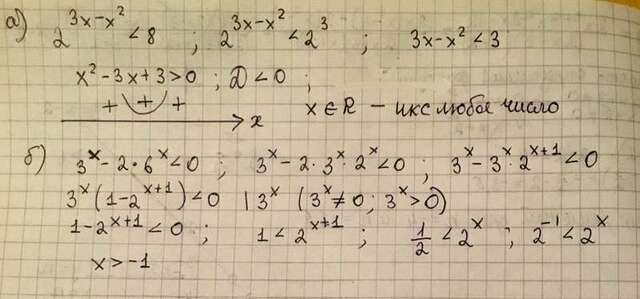 а) 2^{3x-x^2} < 8 ; 2^{3x-x^2} < 2^3 ; 3x-x^2 < 3
x^2-3x+3>0 ; D<0 ;
+ + + x x ∈ R – икс любое число
б) 3^x - 2·6^x < 0 ; 3^x - 2·3^x·2^x < 0 ; 3^x - 3^x·2^{x+1} < 0
3^x (1-2^{x+1}) < 0 | 3^x (3^x ≠ 0 ; 3^x > 0)
1-2^{x+1} < 0 ; 1 < 2^{x+1} ; 1/2 < 2^x ; 2^{-1} < 2^x
x > -1